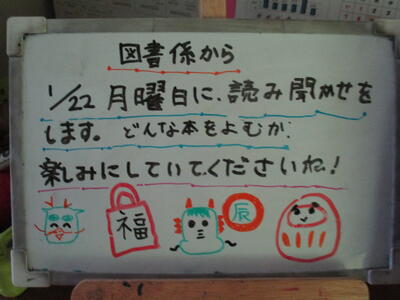 図書係から
1/22 月曜日に、読み聞かせを
します。どんな本をよむか、
楽しみにしていてくださいね!
福
辰